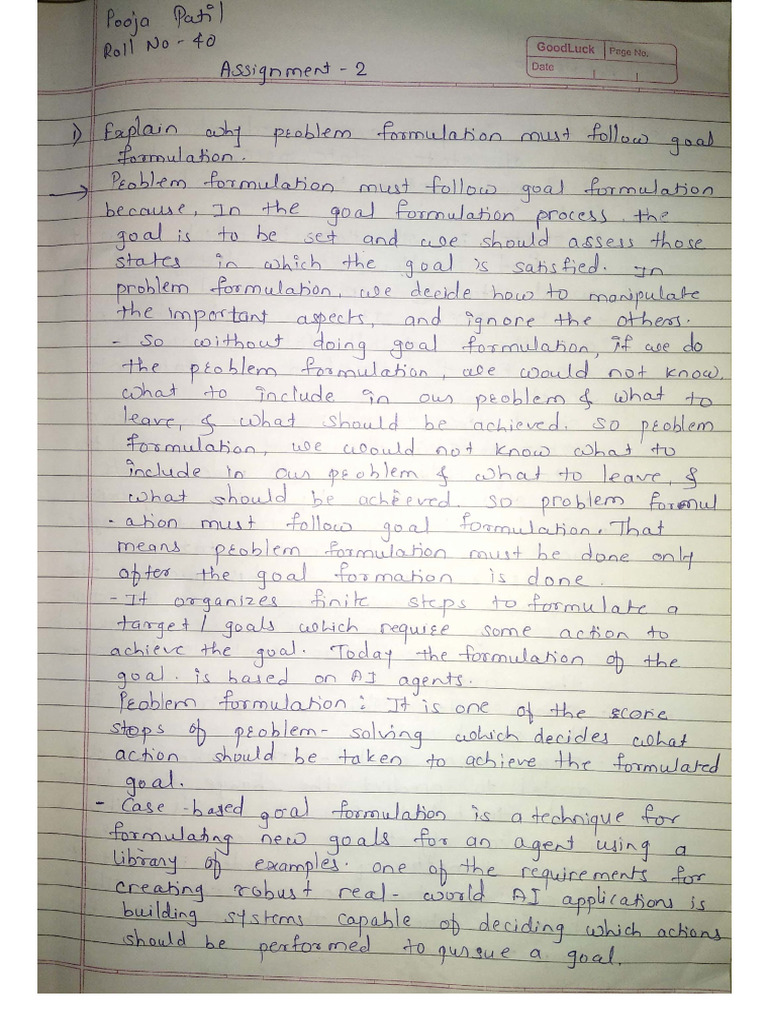 Pooja Patil
Roll No - 40
GoodLuck Page No.
Date
Assignment - 2
1) Explain why problem formulation must follow goal
formulation.
→ Problem formulation must follow goal formulation
because, In the goal formulation process, the
goal is to be set and we should assess those
states in which the goal is satisfied. In
problem formulation, we decide how to manipulate
the important aspects, and ignore the others.
- So without doing goal formulation, if we do
the problem formulation, we would not know
what to include in our problem & what to
leave, & what should be achieved. So problem
formulation, we would not know what to
include in our problem & what to leave, &
what should be achieved. So problem formul
- ation must follow goal formulation. That
means problem formulation must be done only
after the goal formation is done.
- It organizes finite steps to formulate a
target / goals which require some action to
achieve the goal. Today the formulation of the
goal. is based on AI agents.
Problem formulation : It is one of the score
steps of problem - solving which decides what
action should be taken to achieve the formulated
goal.
- Case - based goal formulation is a technique for
formulating new goals for an agent using a
library of examples. one of the requirements for
creating robust real - world AI applications is
building systems capable of deciding which actions
should be performed to pursue a goal.